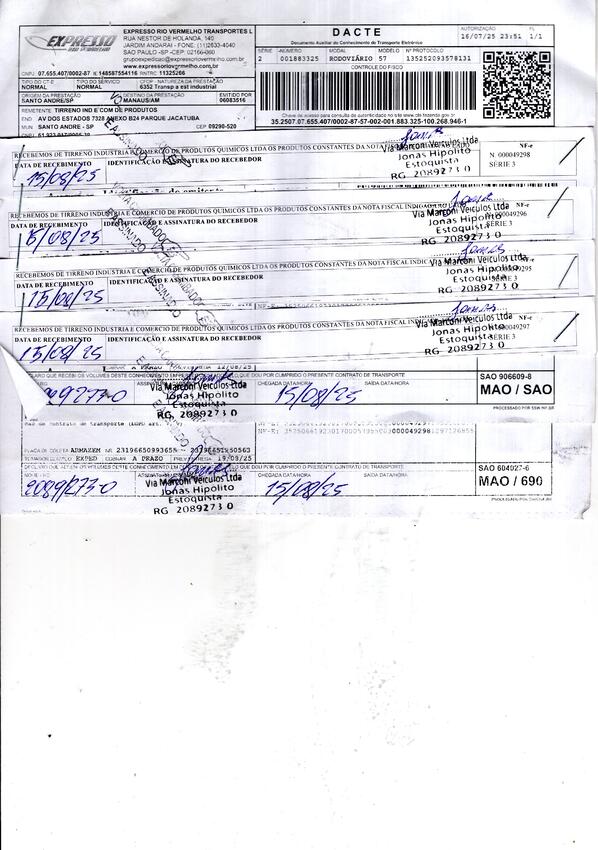 EXPRESSO
RIO VERMELHO
EXPRESSO RIO VERMELHO TRANSPORTES L
RUA NESTOR DE HOLANDA, 149
JARDIM ANDARAI - FONE: (11)2633-4040
SAO PAULO -SP -CEP: 02166-060
grupoexpedicao@expressoriovermelho.com.br
www.expressoriovermelho.com.br
CNPJ 07.655.407/0002-87 IE 148587554116 RNTRC 11325266
DACTE
Documento Auxiliar do Conhecimento de Transporte Eletrônico
AUTORIZAÇÃO FL
16/07/25 23:51 1/1
SÉRIE NÚMERO MODAL MODELO Nº PROTOCOLO
2 001883325 RODOVIÁRIO 57 135252093578131
CONTROLE DO FISCO
TIPO DO CT-E TIPO DO SERVIÇO CFOP - NATUREZA DA PRESTAÇÃO
NORMAL NORMAL 6352 Transp a est industrial
ORIGEM DA PRESTAÇÃO DESTINO DA PRESTAÇÃO EMITIDO POR
SANTO ANDRE/SP MANAUS/AM 06083516
REMETENTE TIRRENO IND E COM DE PRODUTOS
END AV DOS ESTADOS 7328 ANEXO B24 PARQUE JACATUBA
MUN SANTO ANDRE - SP CEP 09290-520
Chave de acesso para consulta de autenticidade no site cte.fazenda.gov.br
35.2507.07.655.407/0002-87-57-002-001.883.325-100.268.946-1
RECEBEMOS DE TIRRENO INDUSTRIA E COMERCIO DE PRODUTOS QUIMICOS LTDA OS PRODUTOS CONSTANTES DA NOTA
NF-e
DATA DE RECEBIMENTO IDENTIFICAÇÃO E ASSINATURA DO RECEBEDOR
N. 000049298
SÉRIE 3
15/08/25
Via Marconi Veiculos Ltda
Jonas Hipolito
Estoquista
RG 2089273 0
RECEBEMOS DE TIRRENO INDUSTRIA E COMERCIO DE PRODUTOS QUIMICOS LTDA OS PRODUTOS CONSTANTES DA NOTA FISCAL
NF-e
DATA DE RECEBIMENTO IDENTIFICAÇÃO E ASSINATURA DO RECEBEDOR
000049296
SÉRIE 3
15/08/25
Via Marconi Veiculos Ltda
Jonas Hipolito
Estoquista
RG 2089273 0
RECEBEMOS DE TIRRENO INDUSTRIA E COMERCIO DE PRODUTOS QUIMICOS LTDA OS PRODUTOS CONSTANTES DA NOTA FISCAL
NF-e
DATA DE RECEBIMENTO IDENTIFICAÇÃO E ASSINATURA DO RECEBEDOR
SÉRIE 3
15/08/25
Via Marconi Veiculos Ltda
Jonas Hipolito
Estoquista
RG 2089273 0
RECEBEMOS DE TIRRENO INDUSTRIA E COMERCIO DE PRODUTOS QUIMICOS LTDA OS PRODUTOS CONSTANTES DA NOTA FISCAL
NF-e
DATA DE RECEBIMENTO IDENTIFICAÇÃO E ASSINATURA DO RECEBEDOR
000049297
SÉRIE 3
15/08/25
Via Marconi Veiculos Ltda
Jonas Hipolito
Estoquista
RG 2089273 0
12/08/25
DOU POR CUMPRIDO O PRESENTE CONTRATO DE TRANSPORTE
CHEGADA DATA/HORA SAÍDA DATA/HORA
SAO 906609-8
MAO / SAO
9273-0
Via Marconi Veiculos Ltda
Jonas Hipolito
Estoquista
RG 2089273 0
15/08/25
PLACA DE COLETA ARMAZEM
A PRAZO 19/08/25
QUE DOU POR CUMPRIDO O PRESENTE CONTRATO DE TRANSPORTE
CHEGADA DATA/HORA SAÍDA DATA/HORA
SAO 604027-6
MAO / 690
2089273-0
Via Marconi Veiculos Ltda
Jonas Hipolito
Estoquista
RG 2089273 0
15/08/25